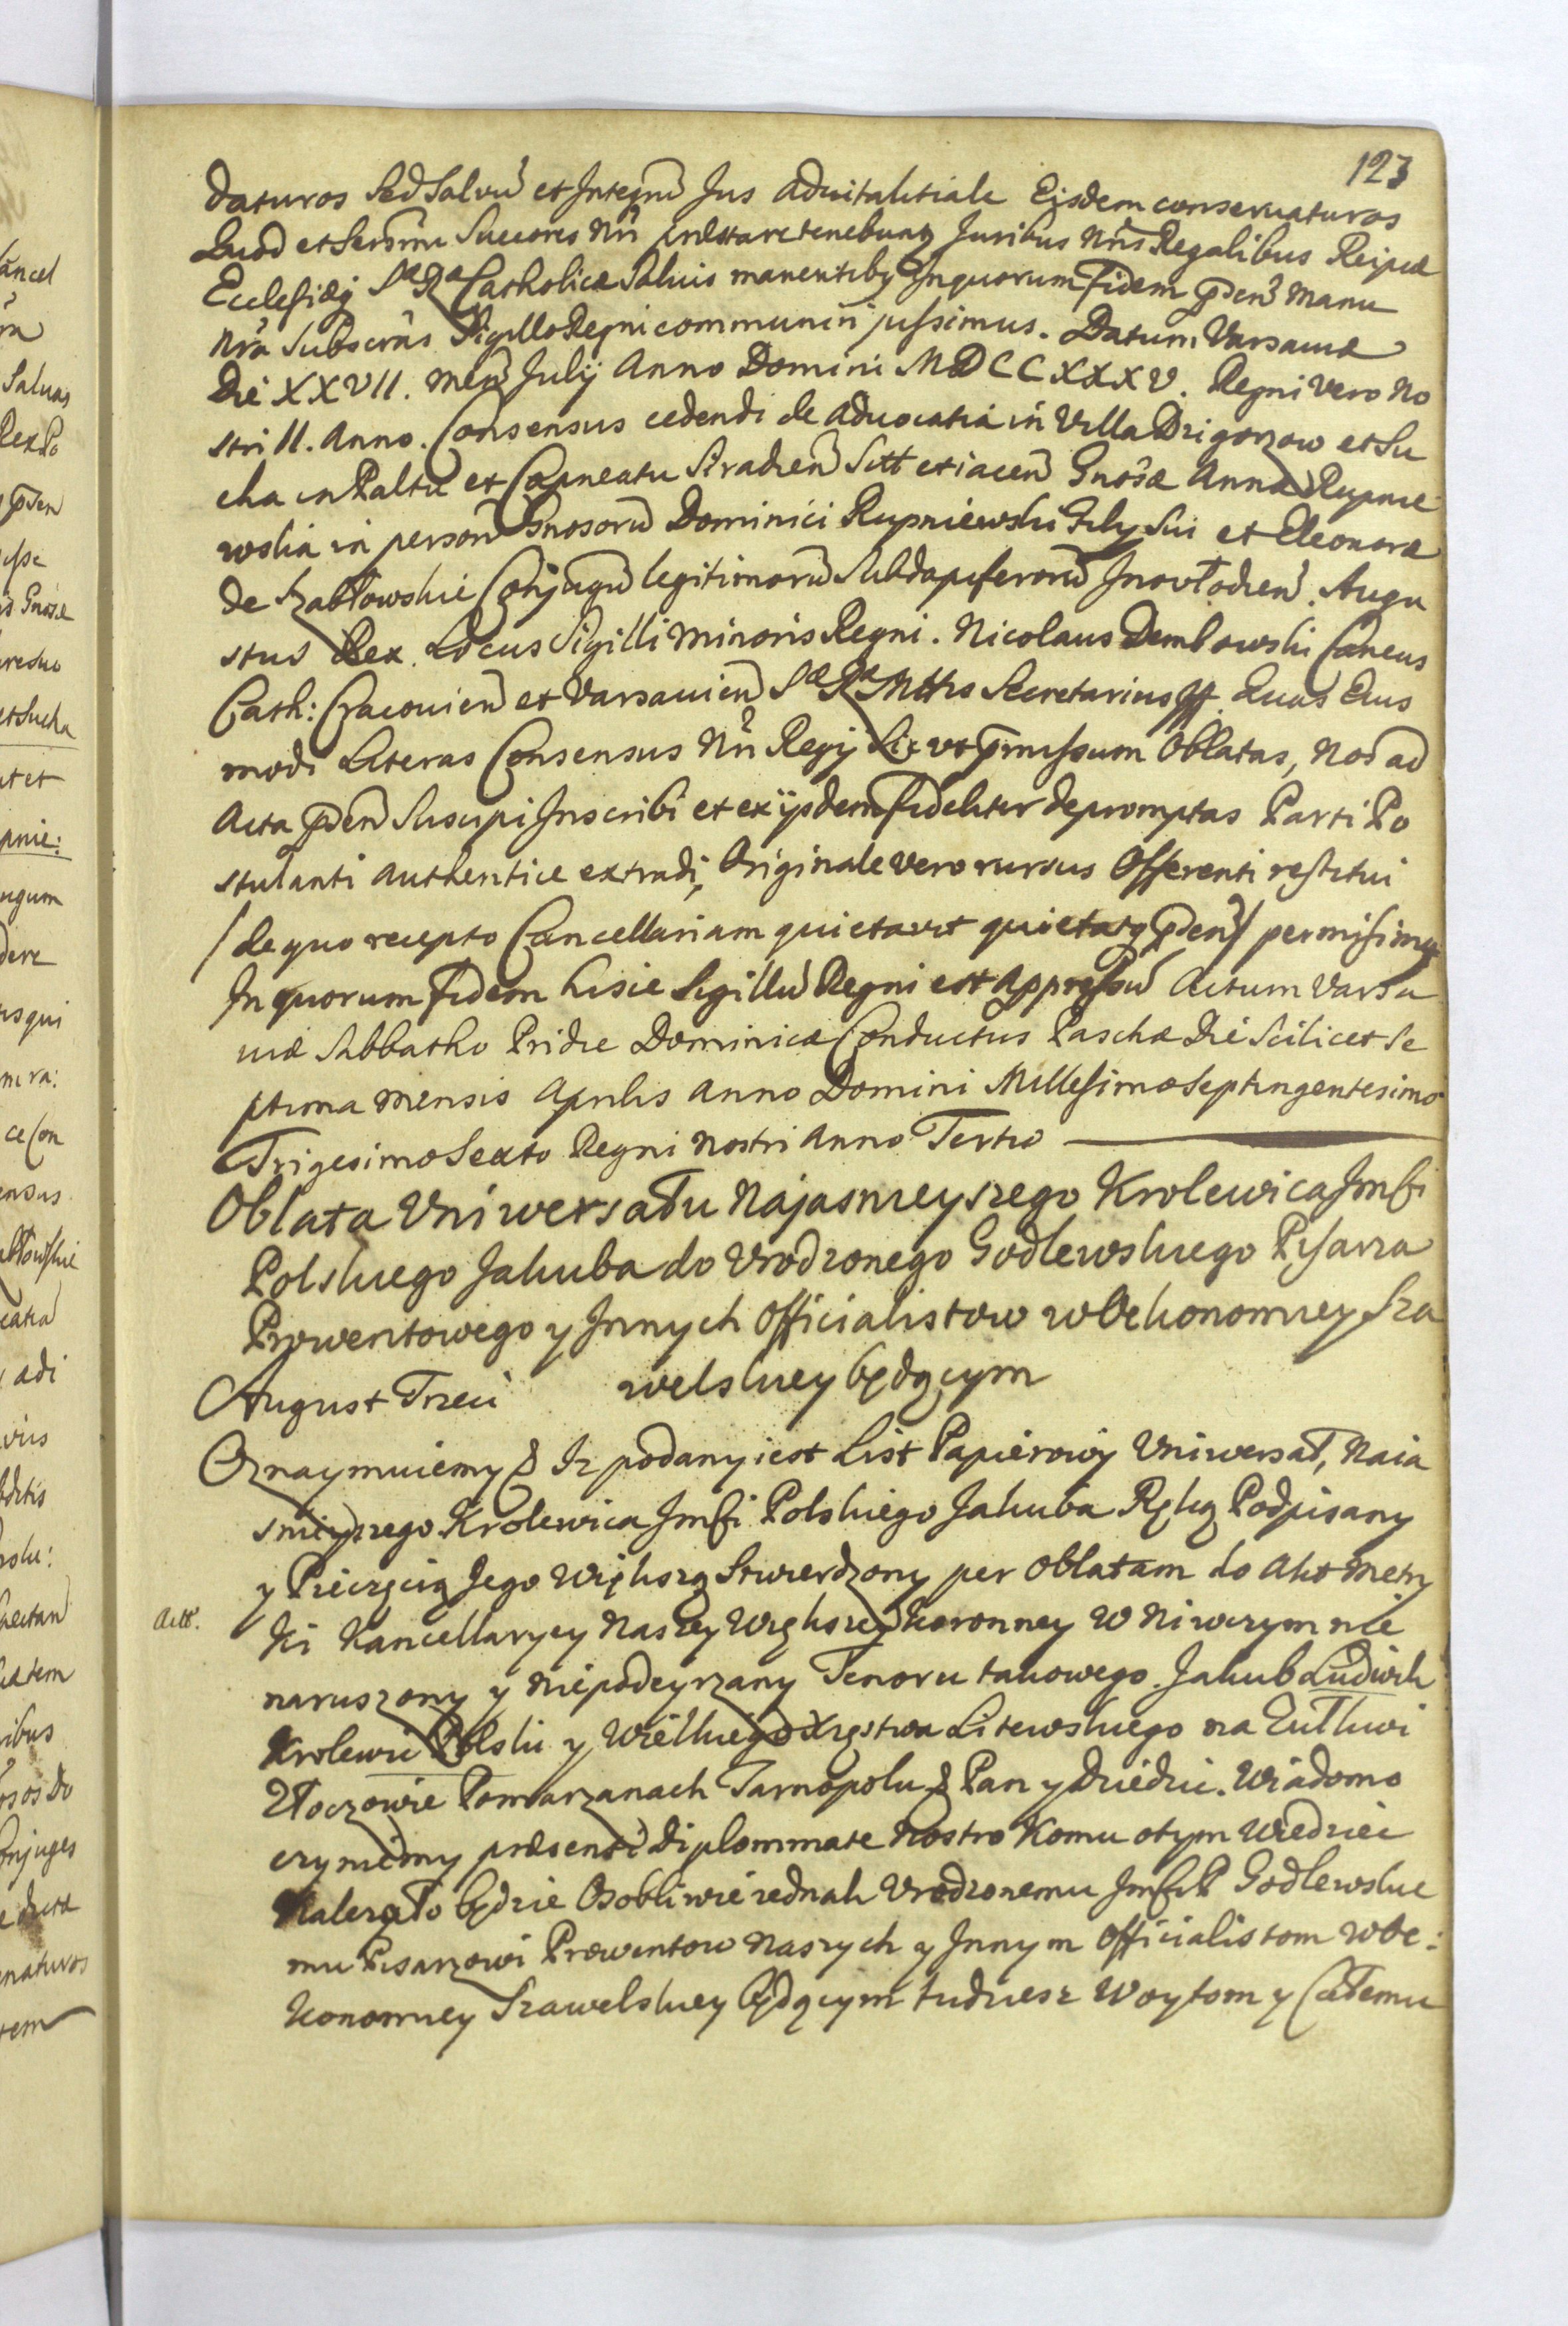 123
daturos Sed Salvũ et Integrũ Jus advitalitiale Eisdem conservaturos
Quod et Serẽmi Succores Nrĩ præstare tenebuntq Juribus Nrĩs Regalibus Reipcæ
Ecclesiæq Sæ Ræ Catholicæ Salvis manentibq In quorum Fidem p̃den̄ manu
Nrã Subscrãs Sigillo Regni communiri jussimus. Datum Varsaviæ
Die XXVII. mens̃ Julij Anno Domini MDCCXXXV. Regni Vero No
stri II. Anno. Consensus cedendi de advocatia in Villa Drigorzow et Su
cha in Paltũ et Capneatu Siradien̄ Sitt et iacen̄ Gnosæ Annæ Rupnie
wska in person̄ Gnosorũ Dominici Rupniewski Filij Sui et Eleonoræ
de Szabłowskie Conjugũ legitimorũ Subdapiferorũ Inovłodien̄. Augu
stus Rex. Locus Sigilli Minoris Regni. Nicolaus Dembowski Cancus
Cath: Cracovien̄ et Varsavien̄ Sæ Ræ Mttis Secretarius ꝟ. Quas Eius
modi Literas Consensus Nrĩ Regij Sic vt p̃missum Oblatas, Nos ad
Acta p̃den̄ Suscipi Inscribi et ex ijsdem fideliter depromptas Parti Po
stulanti authentice extradi, Originale vero rursus Offerenti restitui
/ de quo recepto Cancellariam quietavit quietatq p̃den̄ / permisimq
In quorum fidem hisce Sigillũ Regni est appressũ Actum Varsa
viæ Sabbatho Pridie Dominicæ Conductus Paschæ Die Scilicet Se
ptima mensis Aprilis Anno Domini Millesimo Septingentesimo
Trigesimo Sexto Regni Nostri Anno Tertio
Oblata Vniwersału Najasnieyszego Krolewica Jmći
Polskiego Jakuba do Vrodzonego Godlewskiego Pisarza
Prowentowego y Innych Officialistow w Oekonomiey Sza
welskiey będącym
August Trzeci
Oznaymuiemy & Iz podany iest List Papierowy Vniwersał, Naia
snieyszego Krolewica Jmći Polskiego Jakuba Ręką Podpisany
y Pieczęcią Jego Większą Stwierdzony per Oblatam do Akt Metry
ki Kancellaryey Naszey Większey Koronney w Niwczym nie
naruszony y niepodeyrzany Tenoru takowego. Jakub Ludwik
Krolewic Polski y Wielkiego Xięstwa Litewskiego na Zułkwi
Złoczowie Pomarzanach Tarnopolu & Pan y Dziedzic. Wiadomo
czyniemy præsenti Diplommate Nostro Komu otym Wiedziec
Należało będzie Osobliwie iednak Vrodzonemu Jmći P Godlewskie
mu Pisarzowi Prowentow Naszych y Innym Officialistom w Oe:
konomiey Szawelskiey będącym tudziesz Woytom y Całemu
Actt.
ancel
Salvas
Rex Po
p̃den
Gnosæ
et Sucha
utet
pnie:
ugum
dere
usqui
ce Con
ensus
abłowskie
catia
adi
vius
ibus
os os do
Conjuges
naturos
tem